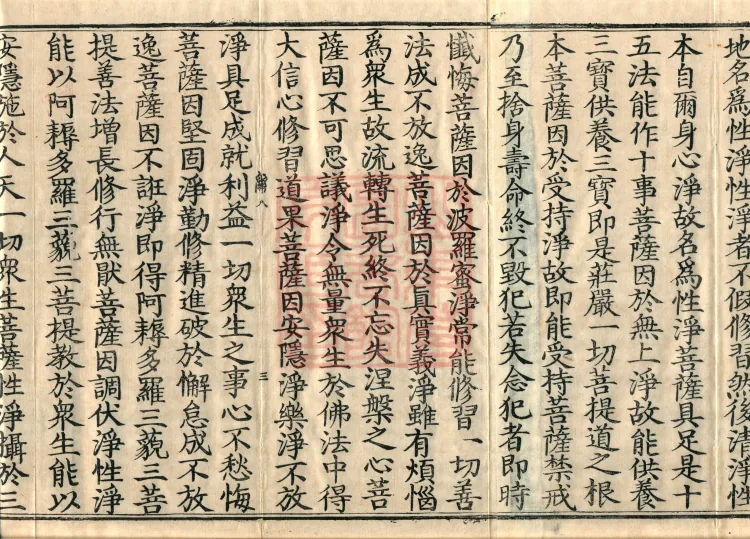 地名為性淨性淨者不假修習然後清淨性
本自爾身心淨故名為性淨菩薩具足是十
五法能作十事菩薩因於無上淨故能供養
三寶供養三寶即是莊嚴一切菩提道之根
本菩薩因於受持淨故即能受持菩薩禁戒
乃至捨身壽命終不毀犯若失念犯者即時
懺悔菩薩因於波羅蜜淨常能修習一切善
法成不放逸菩薩因於真實義淨雖有煩惱
為衆生故流轉生死終不忘失涅槃之心菩
薩因不可思議淨令無量衆生於佛法中得
大信心修習道果菩薩因安隱淨樂淨不放
八
三
淨具足成就利益一切衆生之事心不愁悔
菩薩因堅固淨勤修精進破於懈怠成不放
逸菩薩因不誑淨即得阿耨多羅三藐三菩
提善法增長修行無猒菩薩因調伏淨性淨
能以阿耨多羅三藐三菩提教於衆生能以
安隱施於人天一切衆生菩薩性淨攝於三